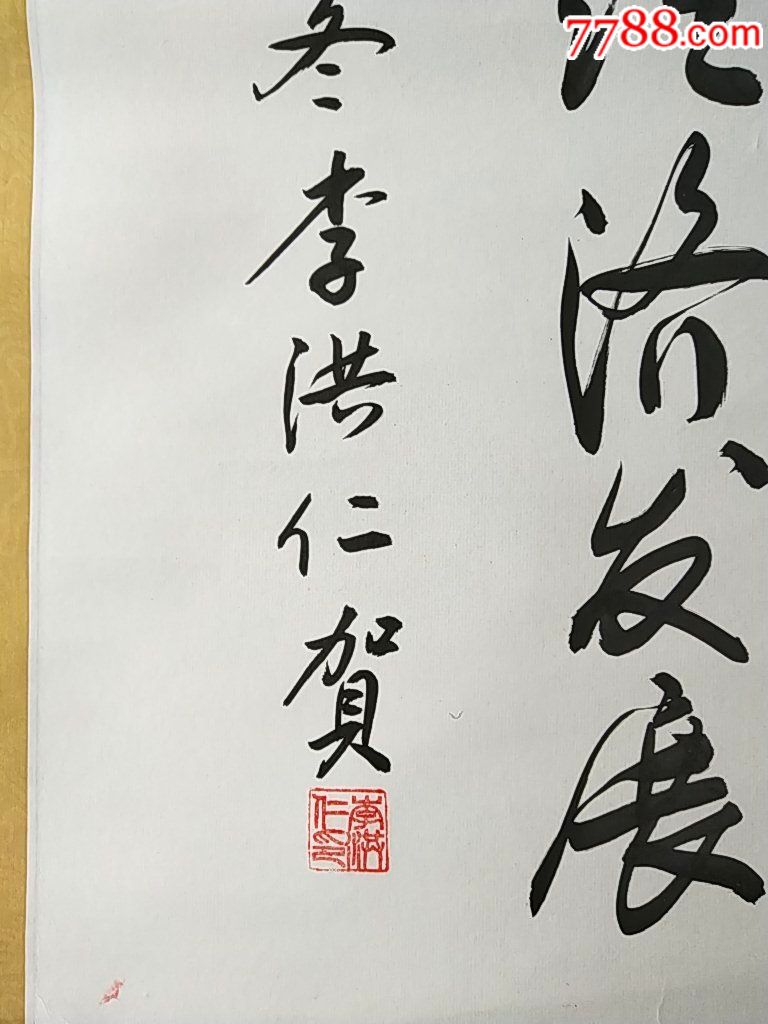 7788.com
济发展
冬李洪仁贺
李洪
仁印